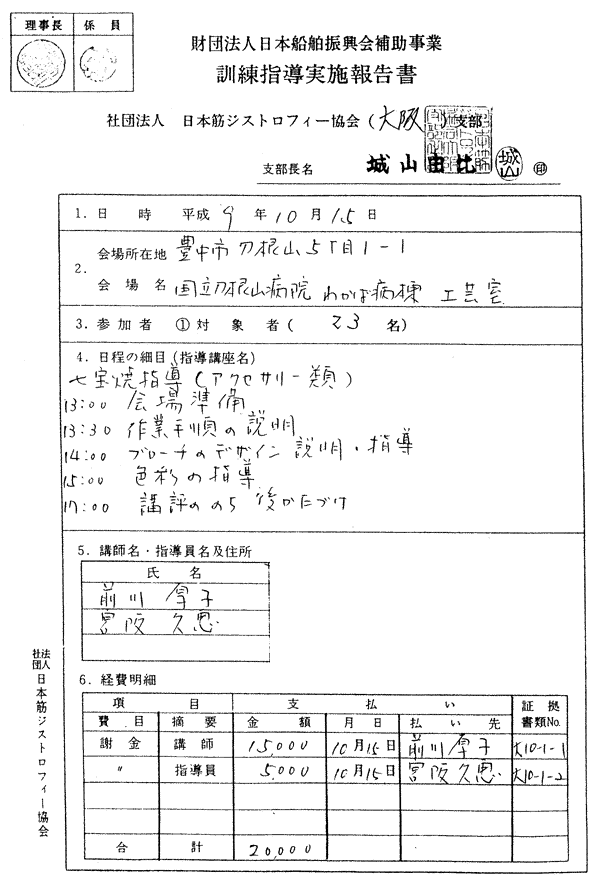 理事長 係員
財団法人日本船舶振興会補助事業
訓練指導実施報告書
社団法人 日本筋ジストロフィー協会(大阪)支部
支部長名 城山由比 城山 印
1. 日 時 平成 9 年 10 月 15 日
2. 会場所在地 豊中市刀根山5丁目1-1
会場名 国立刀根山病院 わかば病棟 工芸室
3. 参加者 ①対象者( 23 名)
4. 日程の細目(指導講座名)
七宝焼指導(アクセサリー類)
13:00 会場準備
13:30 作業手順の説明
14:00 ブローチのデザイン説明・指導
15:00 色彩の指導
17:00 講評ののち 後かたづけ
5. 講師名・指導員名及住所
氏名
前川 厚子
宮阪 久恵
6. 経費明細
項目 支払い 証拠書類No.
費目 摘要 金額 月日 払い先
謝金 講師 15,000 10月15日 前川厚子 大10-1-1
〃 指導員 5,000 10月15日 宮阪久恵 大10-1-2
合計 20,000
社団法人 日本筋ジストロフィー協会